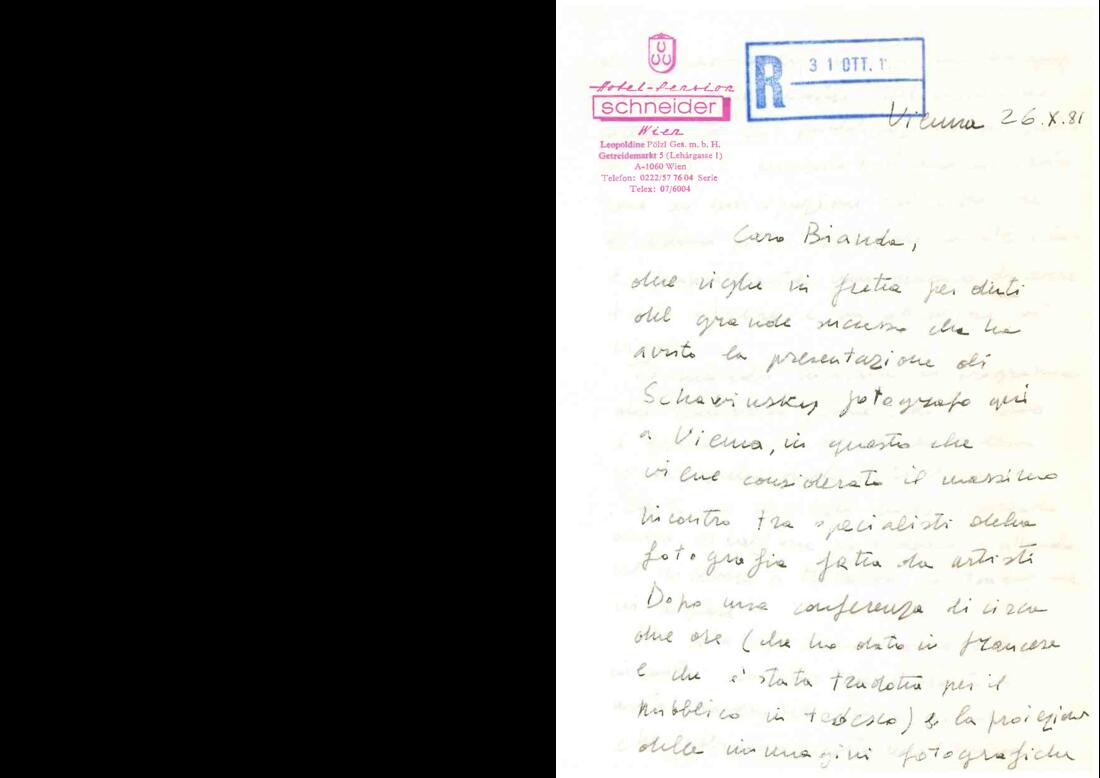 Hotel-Pension
schneider
Wien
Leopoldine Pölzl Ges. m. b. H.
Getreidemarkt 5 (Lehárgasse 1)
A-1060 Wien
Telefon: 0222/57 76 04 Serie
Telex: 07/6004
R
3 1 OTT. 1
Vienna 26.X.81
Caro Bianda,
due righe in fretta per dirti
del grande successo che ha
avuto la presentazione di
Schawinsky fotografo qui
a Vienna, in questo che
viene considerato il massimo
incontro tra specialisti della
fotografia fatta da artisti
Dopo una conferenza di circa
due ore (che ho dato in francese
e che è stata tradotta per il
pubblico in tedesco) e la proiezione
delle immagini fotografiche